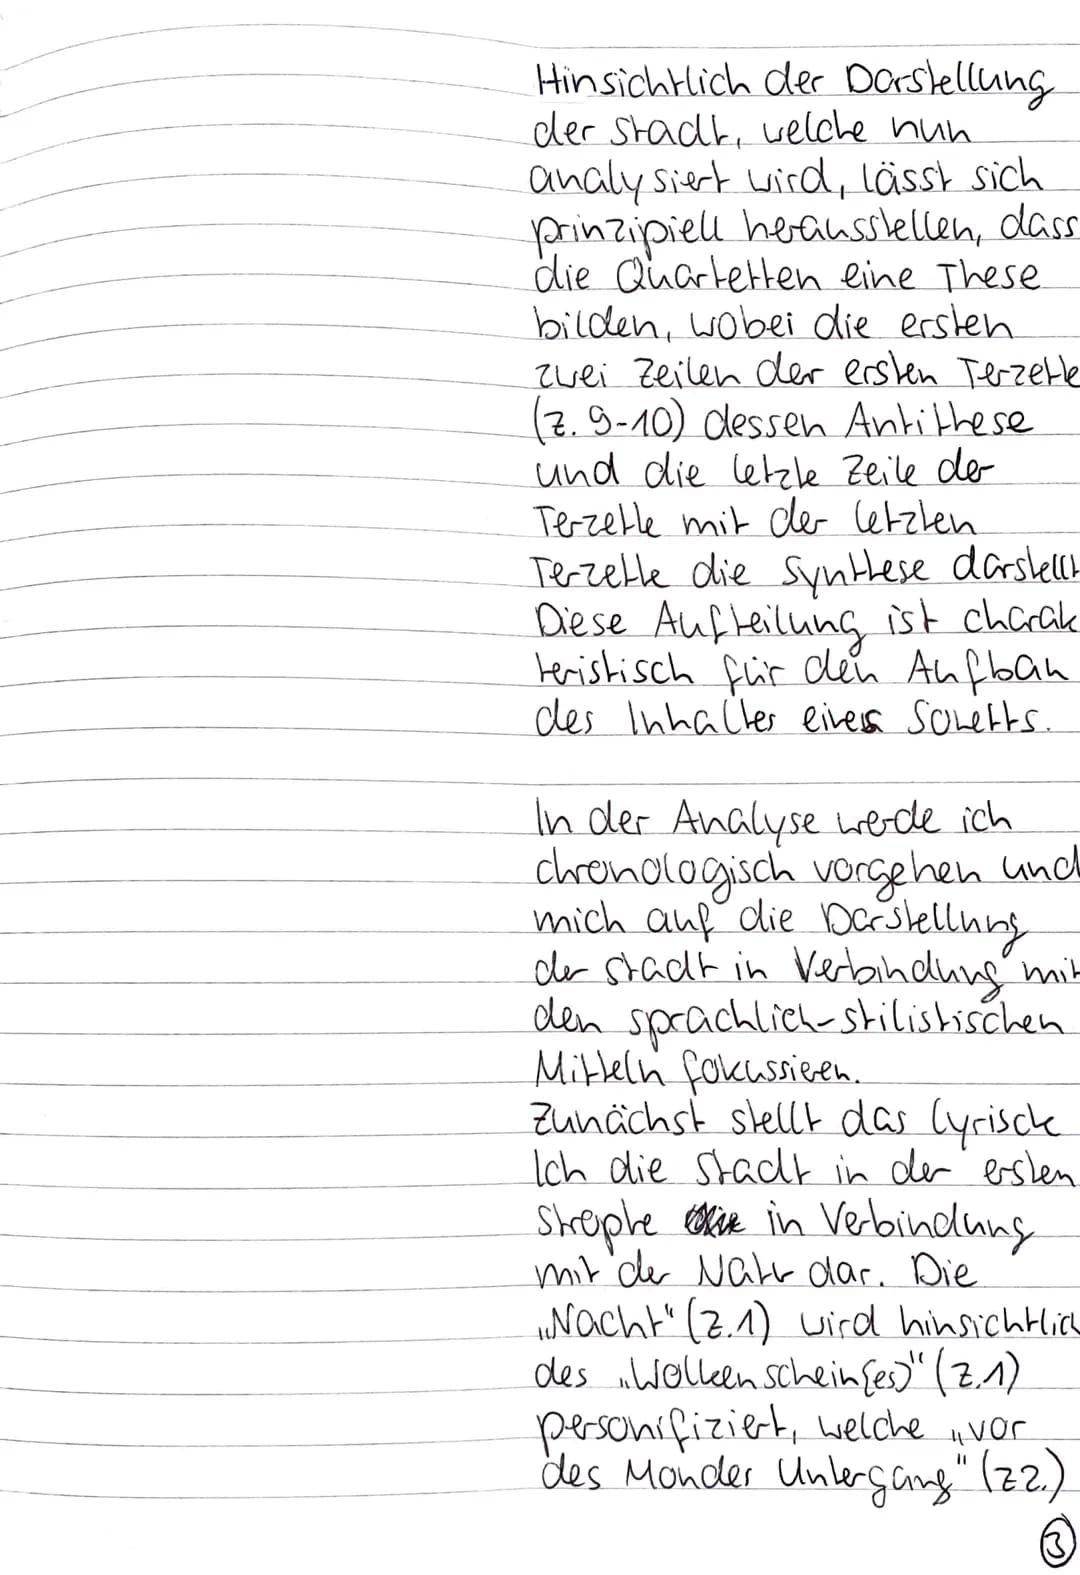 Hinsichtlich der Darstellung
der Stadt, welche nun
analysiert wird, lässt sich
prinzipiell herausstellen, dass
die Quartetten eine These
bilden, wobei die ersten
zwei Zeilen der ersten Terzette
(Z. 9-10) dessen Antithese
und die letzte Zeile der
Terzette mit der letzten
Terzette die Synthese darstellt
Diese Aufteilung ist charak
teristisch für den Aufbau
des Inhaltes eines Sonetts.
In der Analyse werde ich
chronologisch vorgehen und
mich auf die Darstellung
der Stadt in Verbindung mit
den sprachlich-stilistischen
Mitteln fokussieren.
Zunächst stellt das lyrische
Ich die Stadt in der ersten
Strophe in Verbindung
mit der Natur dar. Die
„Nacht" (Z.1) wird hinsichtlich
des „Wolkenschein[es]" (Z.1)
personifiziert, welche „vor
des Mondes Untergang" (Z2.)
3